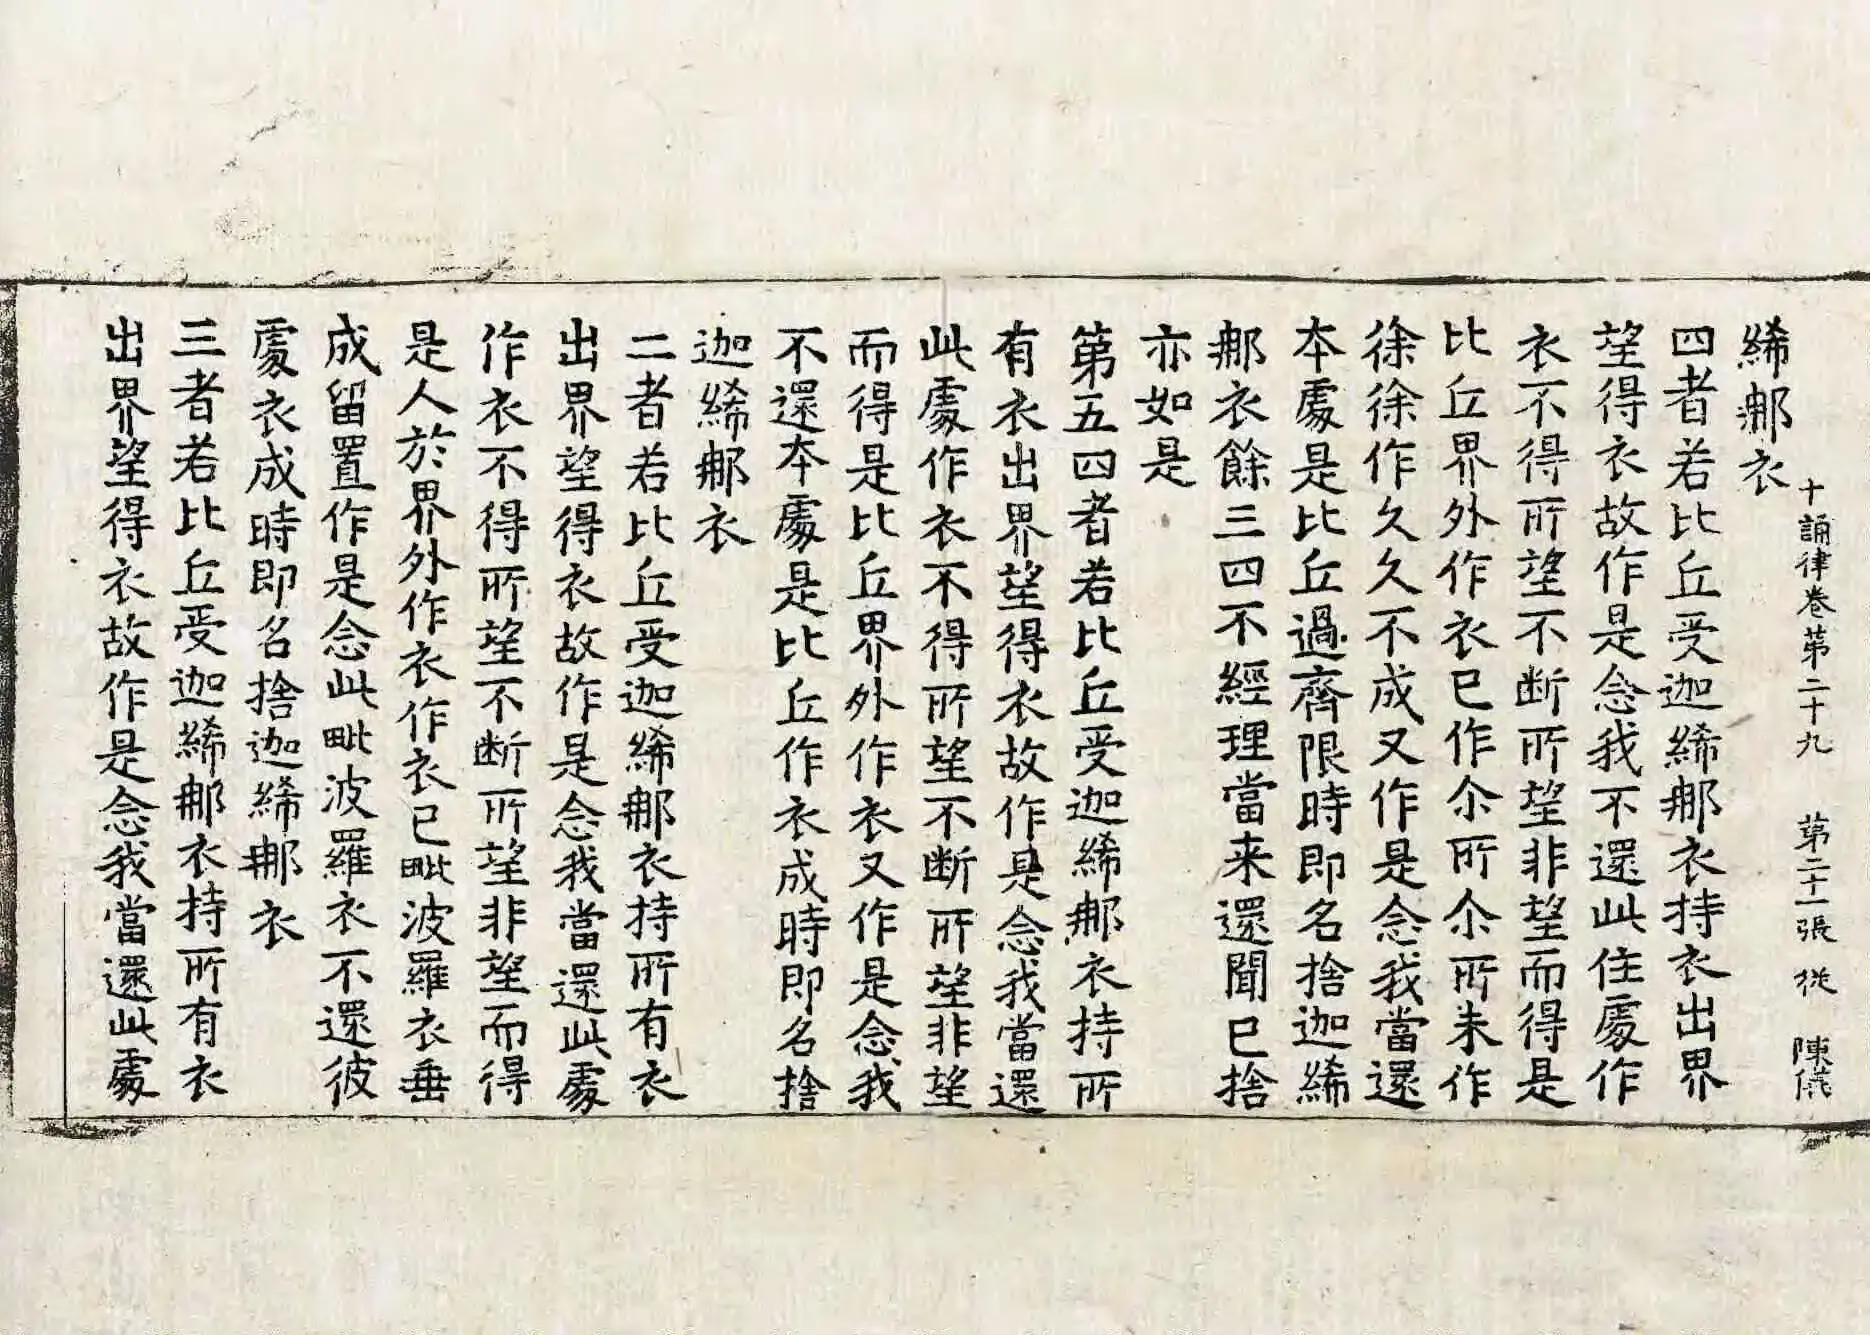 十誦律卷第二十九 第二十一張 従 陳
絺那衣
四者若比丘受迦絺那衣持衣出界
望得衣故作是念我不還此住處作
衣不得所望不断所望非望而得是
比丘界外作衣已作尒所尒所未作
徐徐作久久不成又作是念我當還
本處是比丘過齊限時即名捨迦絺
那衣餘三四不經理當来還聞已捨
亦如是
第五四者若比丘受迦絺那衣持所
有衣出界望得衣故作是念我當還
此處作衣不得所望不断所望非望
而得是比丘界外作衣又作是念我
不還本處是比丘作衣成時即名捨
迦絺那衣
二者若比丘受迦絺那衣持所有衣
出界望得衣故作是念我當還此處
作衣不得所望不断所望非望而得
是人於界外作衣作衣已毗波羅衣垂
成留置作是念此毗波羅衣不還彼
處衣成時即名捨迦絺那衣
三者若比丘受迦絺那衣持所有衣
出界望得衣故作是念我當還此處